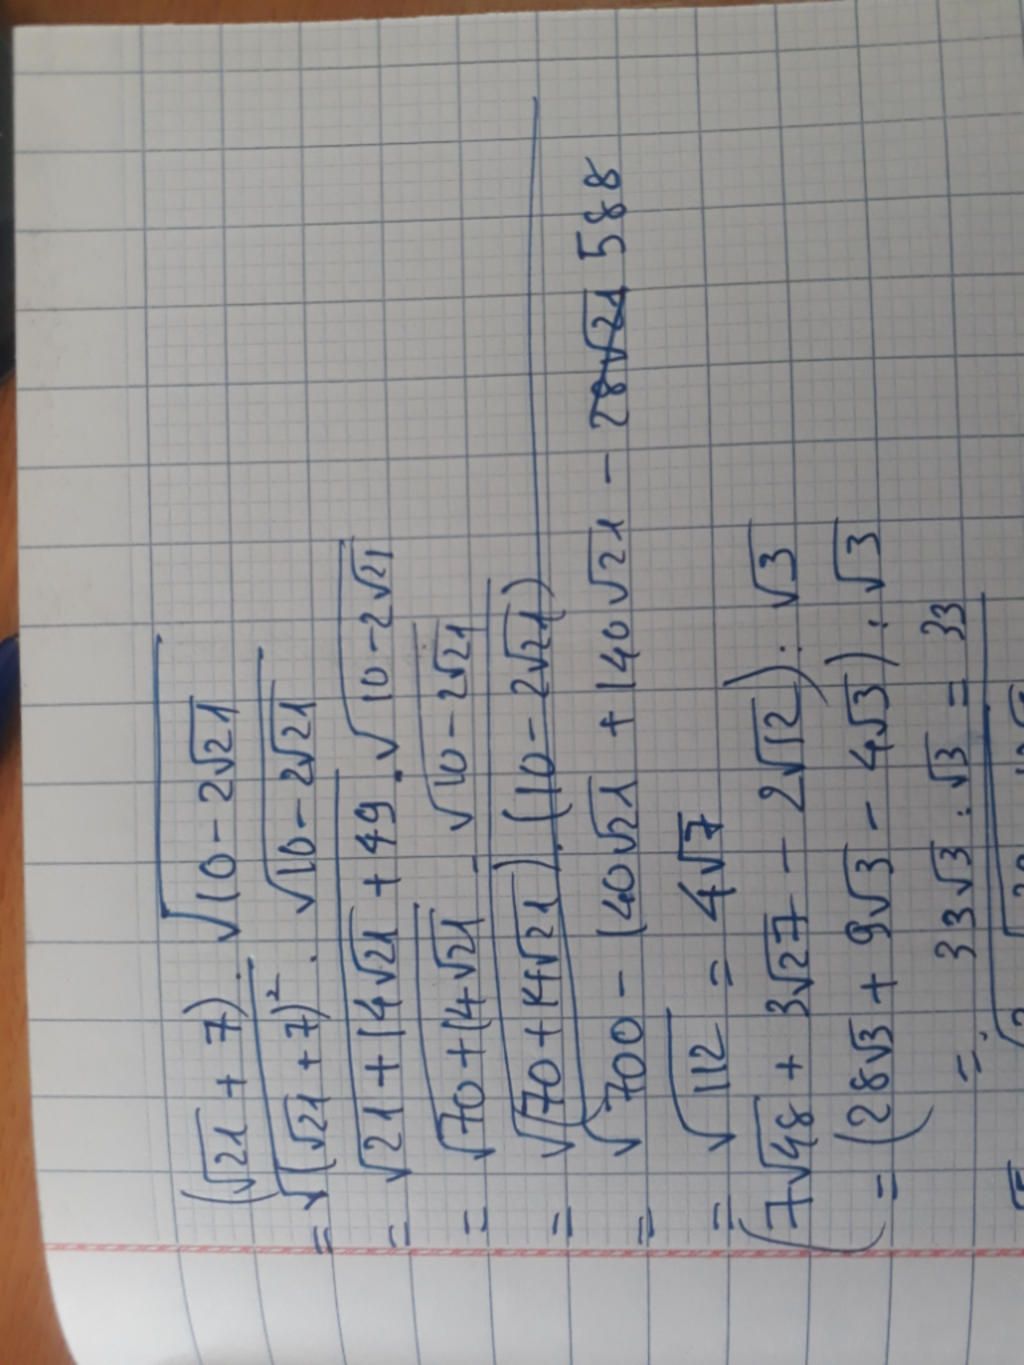 (√21 + 7) . √(10 - 2√21
= √(√21 + 7)² . √10 - 2√21
= √21 + 14√21 + 49 . √10 - 2√21
= √70 + 14√21 . √10 - 2√21
= √(70 + 14√21) . (10 - 2√21)
= √700 - 140√21 + 140√21 - 28√21 588
= √112 = 4√7
(7√48 + 3√27 - 2√12) : √3
= (28√3 + 9√3 - 4√3) : √3
= 33√3 : √3 = 33